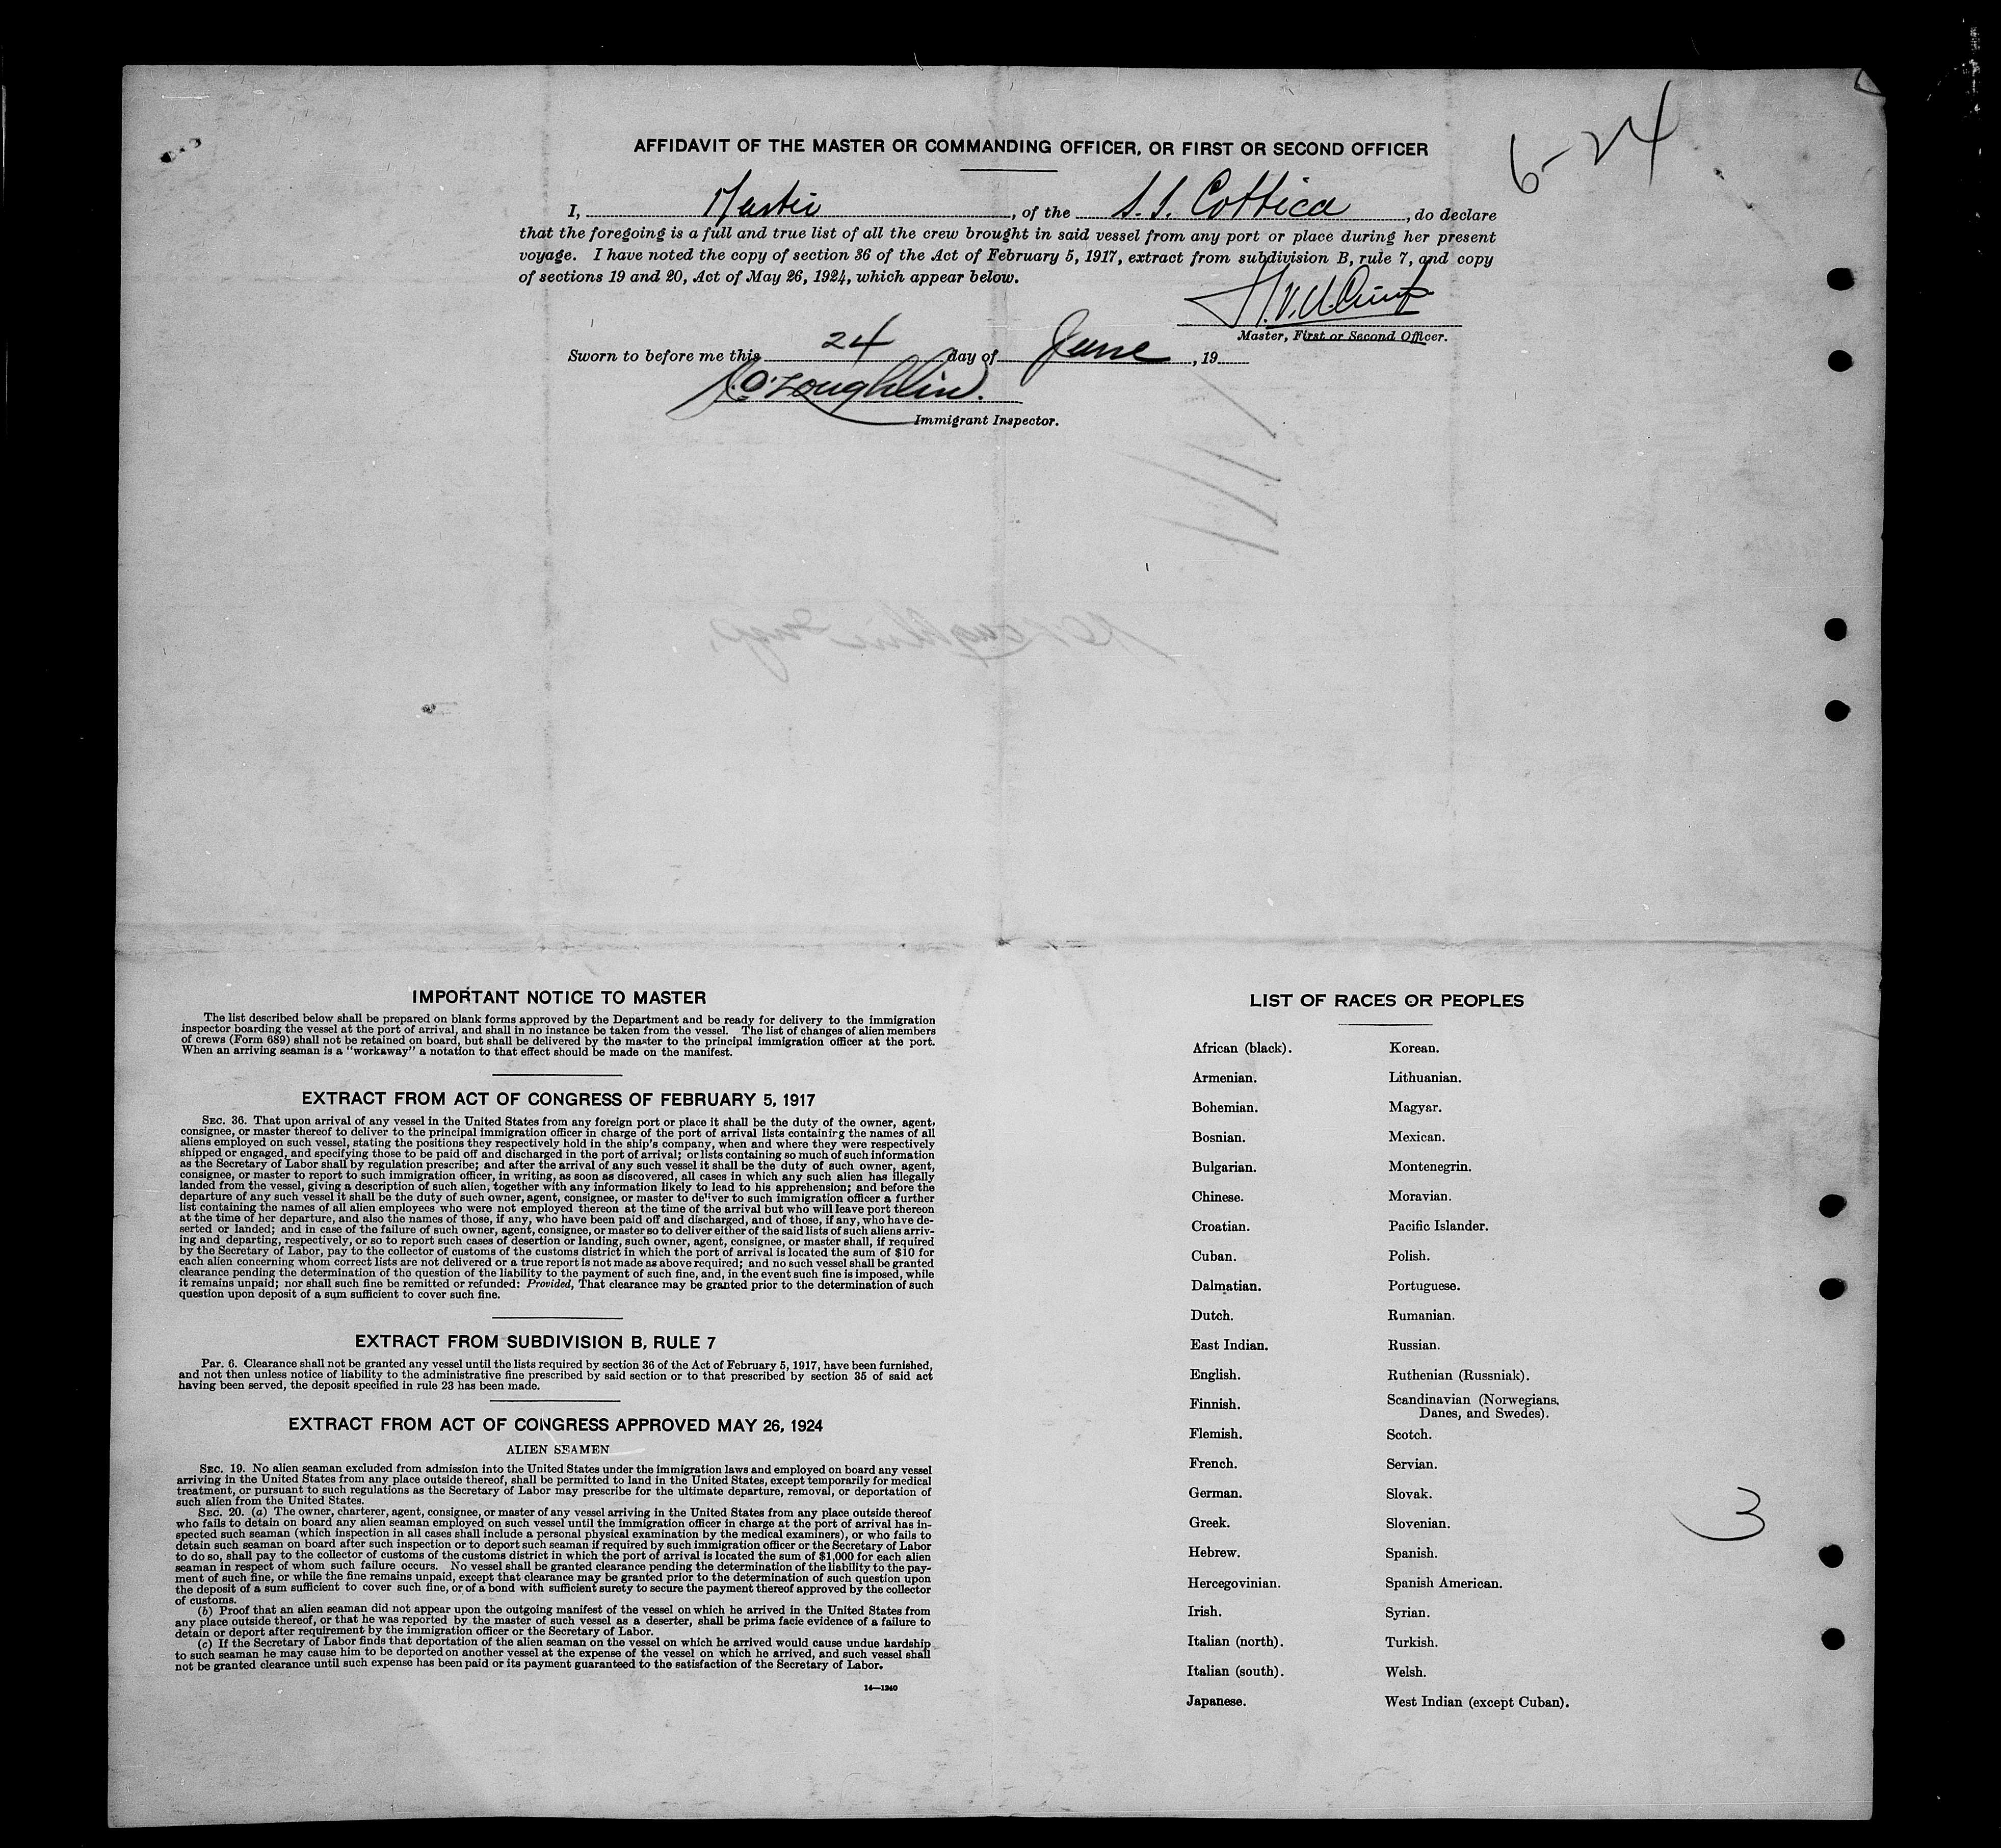 6-24
AFFIDAVIT OF THE MASTER OR COMMANDING OFFICER, OR FIRST OR SECOND OFFICER
I, Master, of the S.S. Cottica, do declare
that the foregoing is a full and true list of all the crew brought in said vessel from any port or place during her present
voyage. I have noted the copy of section 36 of the Act of February 5, 1917, extract from subdivision B, rule 7, and copy
of sections 19 and 20, Act of May 26, 1924, which appear below.
Master, First or Second Officer.
Sworn to before me this 24 day of June, 19
O'Loughlin.
Immigrant Inspector.
IMPORTANT NOTICE TO MASTER
The list described below shall be prepared on blank forms approved by the Department and be ready for delivery to the immigration
inspector boarding the vessel at the port of arrival, and shall in no instance be taken from the vessel. The list of changes of alien members
of crews (Form 689) shall not be retained on board, but shall be delivered by the master to the principal immigration officer at the port.
When an arriving seaman is a "workaway" a notation to that effect should be made on the manifest.
EXTRACT FROM ACT OF CONGRESS OF FEBRUARY 5, 1917
SEC. 36. That upon arrival of any vessel in the United States from any foreign port or place it shall be the duty of the owner, agent,
consignee, or master thereof to deliver to the principal immigration officer in charge of the port of arrival lists containing the names of all
aliens employed on such vessel, stating the positions they respectively hold in the ship's company, when and where they were respectively
shipped or engaged, and specifying those to be paid off and discharged in the port of arrival; or lists containing so much of such information
as the Secretary of Labor shall by regulation prescribe; and after the arrival of any such vessel it shall be the duty of such owner, agent,
consignee, or master to report to such immigration officer, in writing, as soon as discovered, all cases in which any such alien has illegally
landed from the vessel, giving a description of such alien, together with any information likely to lead to his apprehension; and before the
departure of any such vessel it shall be the duty of such owner, agent, consignee, or master to deliver to such immigration officer a further
list containing the names of all alien employees who were not employed thereon at the time of the arrival but who will leave port thereon
at the time of her departure, and also the names of those, if any, who have been paid off and discharged, and of those, if any, who have de-
serted or landed; and in case of the failure of such owner, agent, consignee, or master so to deliver either of the said lists of such aliens arriv-
ing and departing, respectively, or so to report such cases of desertion or landing, such owner, agent, consignee, or master shall, if required
by the Secretary of Labor, pay to the collector of customs of the customs district in which the port of arrival is located the sum of $10 for
each alien concerning whom correct lists are not delivered or a true report is not made as above required; and no such vessel shall be granted
clearance pending the determination of the question of the liability to the payment of such fine, and, in the event such fine is imposed, while
it remains unpaid; nor shall such fine be remitted or refunded: Provided, That clearance may be granted prior to the determination of such
question upon deposit of a sum sufficient to cover such fine.
EXTRACT FROM SUBDIVISION B, RULE 7
Par. 6. Clearance shall not be granted any vessel until the lists required by section 36 of the Act of February 5, 1917, have been furnished,
and not then unless notice of liability to the administrative fine prescribed by said section or to that prescribed by section 35 of said act
having been served, the deposit specified in rule 23 has been made.
EXTRACT FROM ACT OF CONGRESS APPROVED MAY 26, 1924
ALIEN SEAMEN
SEC. 19. No alien seaman excluded from admission into the United States under the immigration laws and employed on board any vessel
arriving in the United States from any place outside thereof, shall be permitted to land in the United States, except temporarily for medical
treatment, or pursuant to such regulations as the Secretary of Labor may prescribe for the ultimate departure, removal, or deportation of
such alien from the United States.
SEC. 20. (a) The owner, charterer, agent, consignee, or master of any vessel arriving in the United States from any place outside thereof
who fails to detain on board any alien seaman employed on such vessel until the immigration officer in charge at the port of arrival has in-
spected such seaman (which inspection in all cases shall include a personal physical examination by the medical examiners), or who fails to
detain such seaman on board after such inspection or to deport such seaman if required by such immigration officer or the Secretary of Labor
to do so, shall pay to the collector of customs of the customs district in which the port of arrival is located the sum of $1,000 for each alien
seaman in respect of whom such failure occurs. No vessel shall be granted clearance pending the determination of the liability to the pay-
ment of such fine, or while the fine remains unpaid, except that clearance may be granted prior to the determination of such question upon
the deposit of a sum sufficient to cover such fine, or of a bond with sufficient surety to secure the payment thereof approved by the collector
of customs.
(b) Proof that an alien seaman did not appear upon the outgoing manifest of the vessel on which he arrived in the United States from
any place outside thereof, or that he was reported by the master of such vessel as a deserter, shall be prima facie evidence of a failure to
detain or deport after requirement by the immigration officer or the Secretary of Labor.
(c) If the Secretary of Labor finds that deportation of the alien seaman on the vessel on which he arrived would cause undue hardship
to such seaman he may cause him to be deported on another vessel at the expense of the vessel on which he arrived, and such vessel shall
not be granted clearance until such expense has been paid or its payment guaranteed to the satisfaction of the Secretary of Labor.
14—1240
LIST OF RACES OR PEOPLES
African (black). Korean.
Armenian. Lithuanian.
Bohemian. Magyar.
Bosnian. Mexican.
Bulgarian. Montenegrin.
Chinese. Moravian.
Croatian. Pacific Islander.
Cuban. Polish.
Dalmatian. Portuguese.
Dutch. Rumanian.
East Indian. Russian.
English. Ruthenian (Russniak).
Finnish. Scandinavian (Norwegians,
Danes, and Swedes).
Flemish. Scotch.
French. Servian.
German. Slovak.
Greek. Slovenian.
Hebrew. Spanish.
Hercegovinian. Spanish American.
Irish. Syrian.
Italian (north). Turkish.
Italian (south). Welsh.
Japanese. West Indian (except Cuban).
3